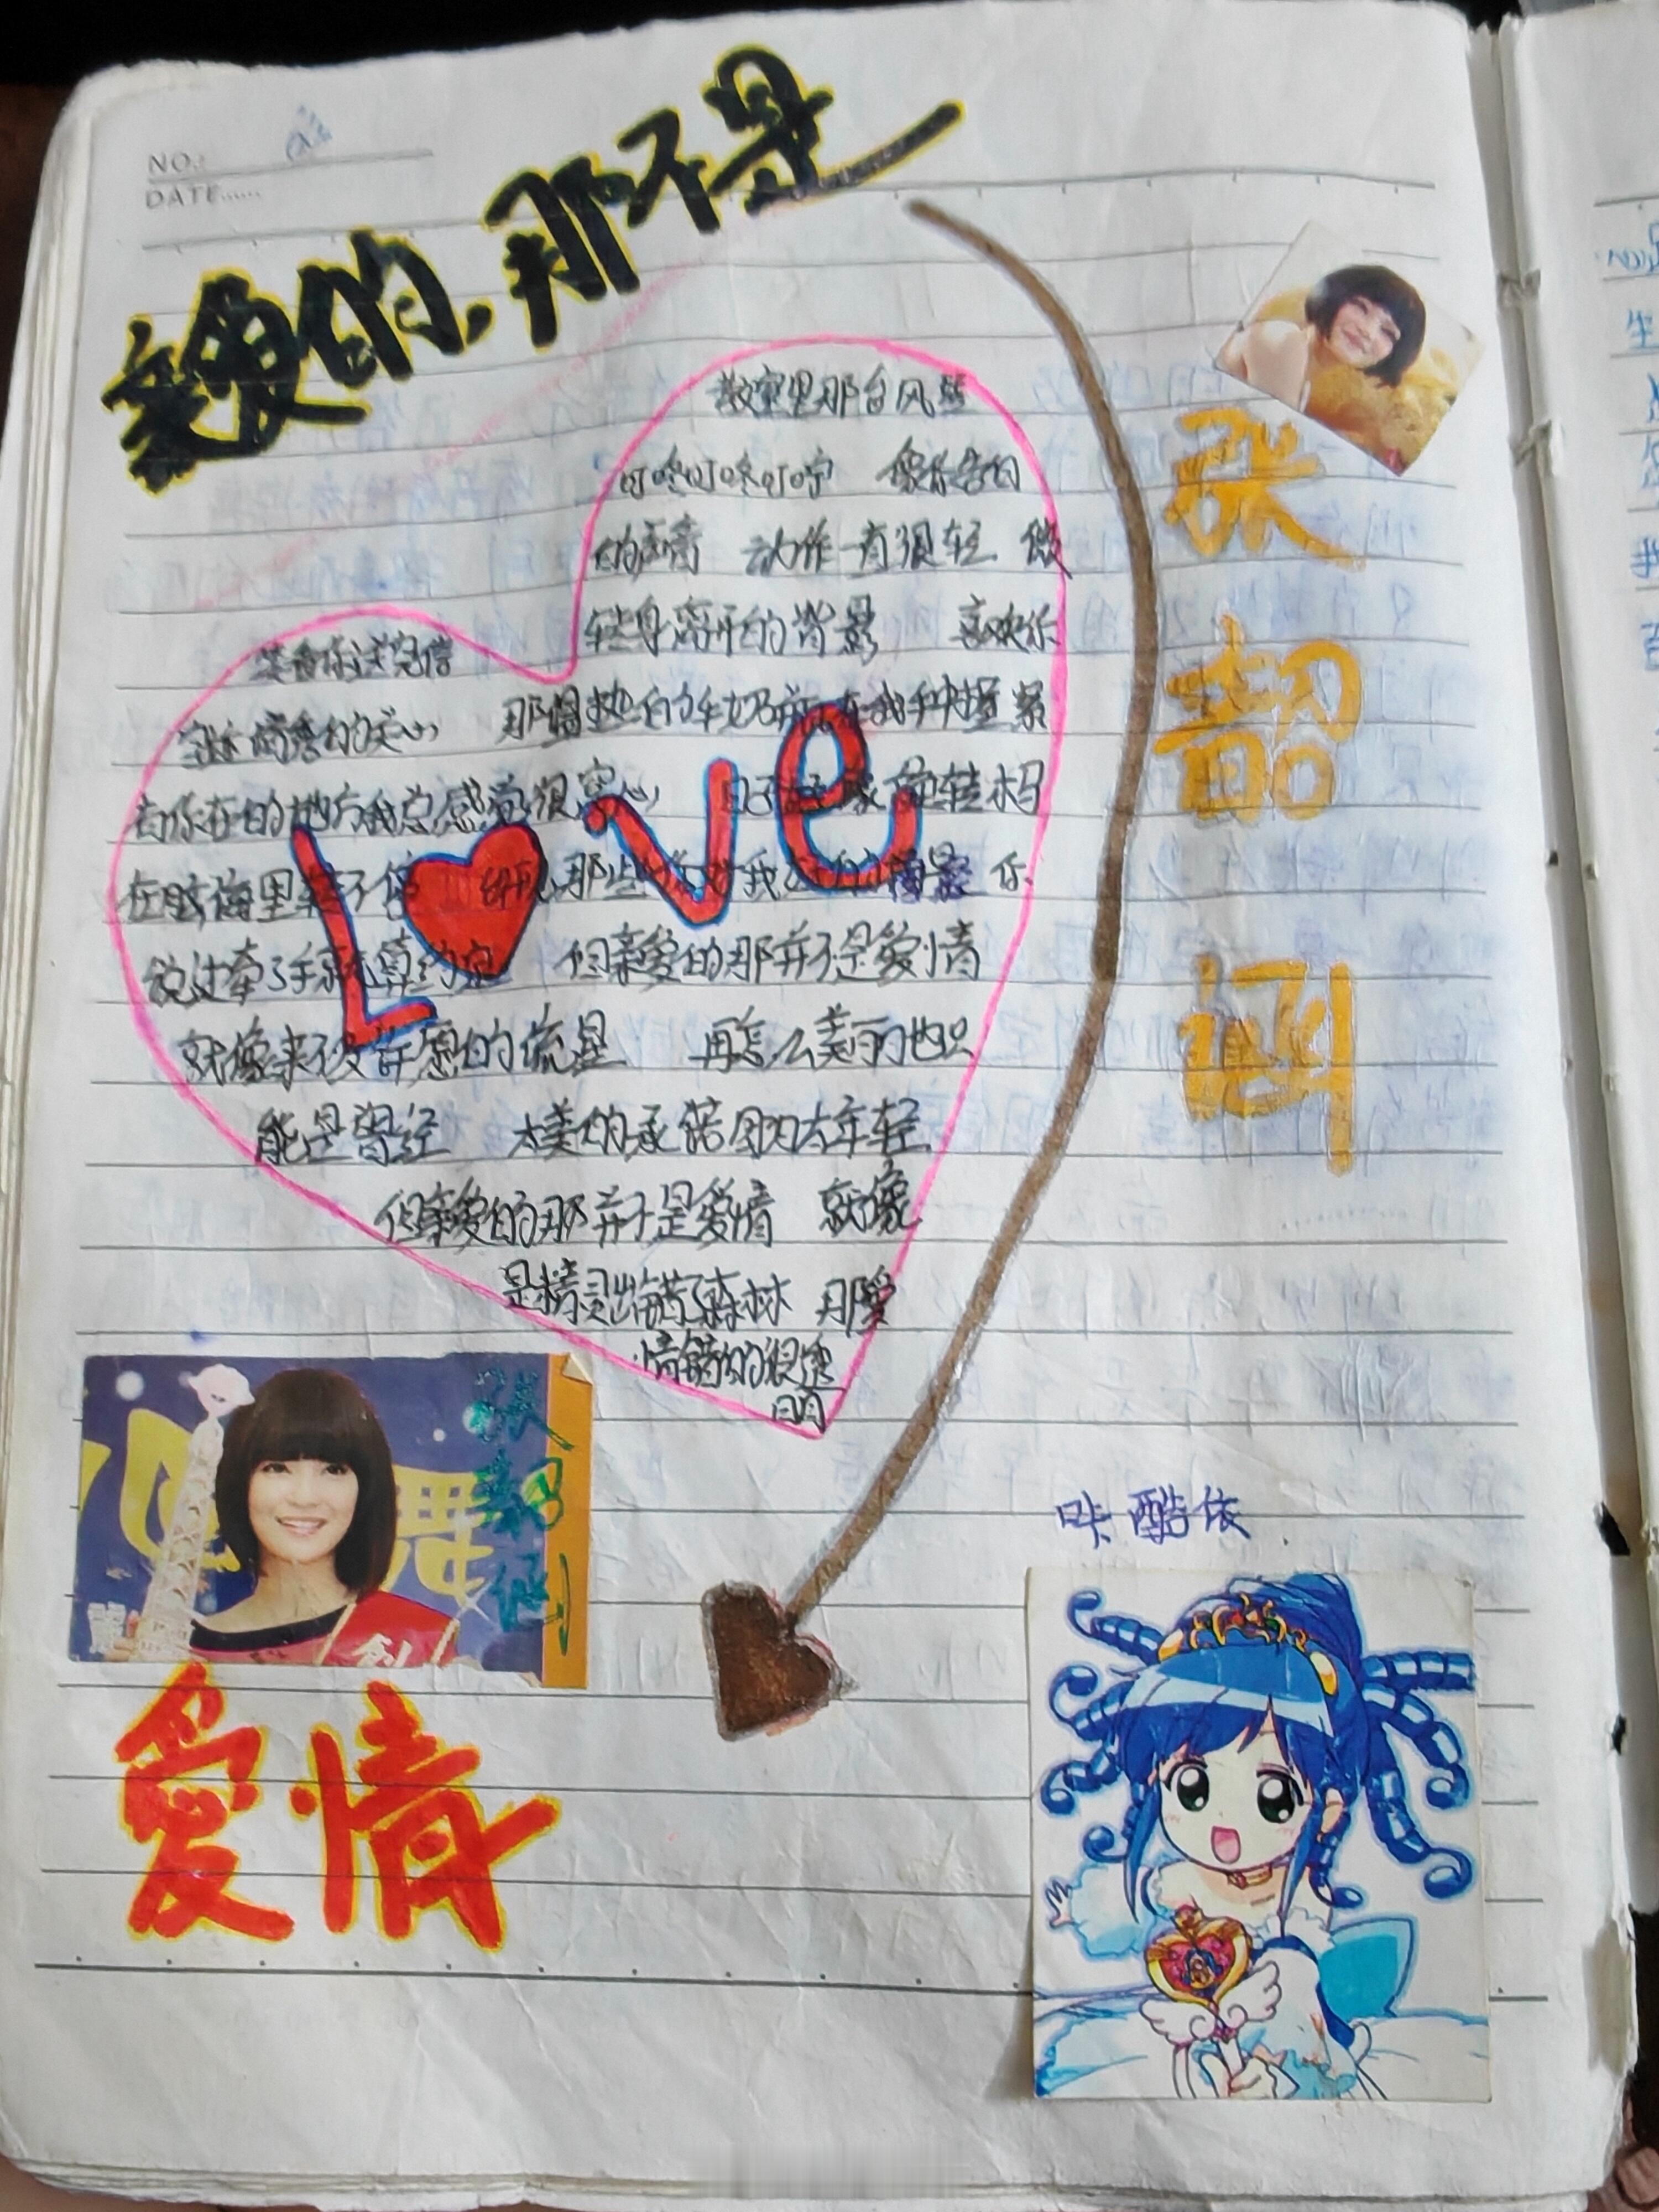 NO.:
DATE......
親爱的,那不是
张
韶
涵
教室里那台风琴
叮咚叮咚叮咛 像你告白
的声音 动作一直很轻 微
笑看你送完信
转身离开的背影 喜欢你
字迹 的关心 那温热的牛奶瓶在我手中握紧
有你在的地方我总感觉很窝心 日子 像旋转木马
在脑海里转不停 出现那些你对我 的情景 你
说过牵了手就算约定 但亲爱的那并不是爱情
Love
就像来不及许愿的流星 再怎么美丽也只
能是曾经 太美的承诺因为太年轻
但亲爱的那并不是爱情 就像
是精灵 了森林 那爱
情错的很透
明
张韶涵
舞
爱情
咔酷依